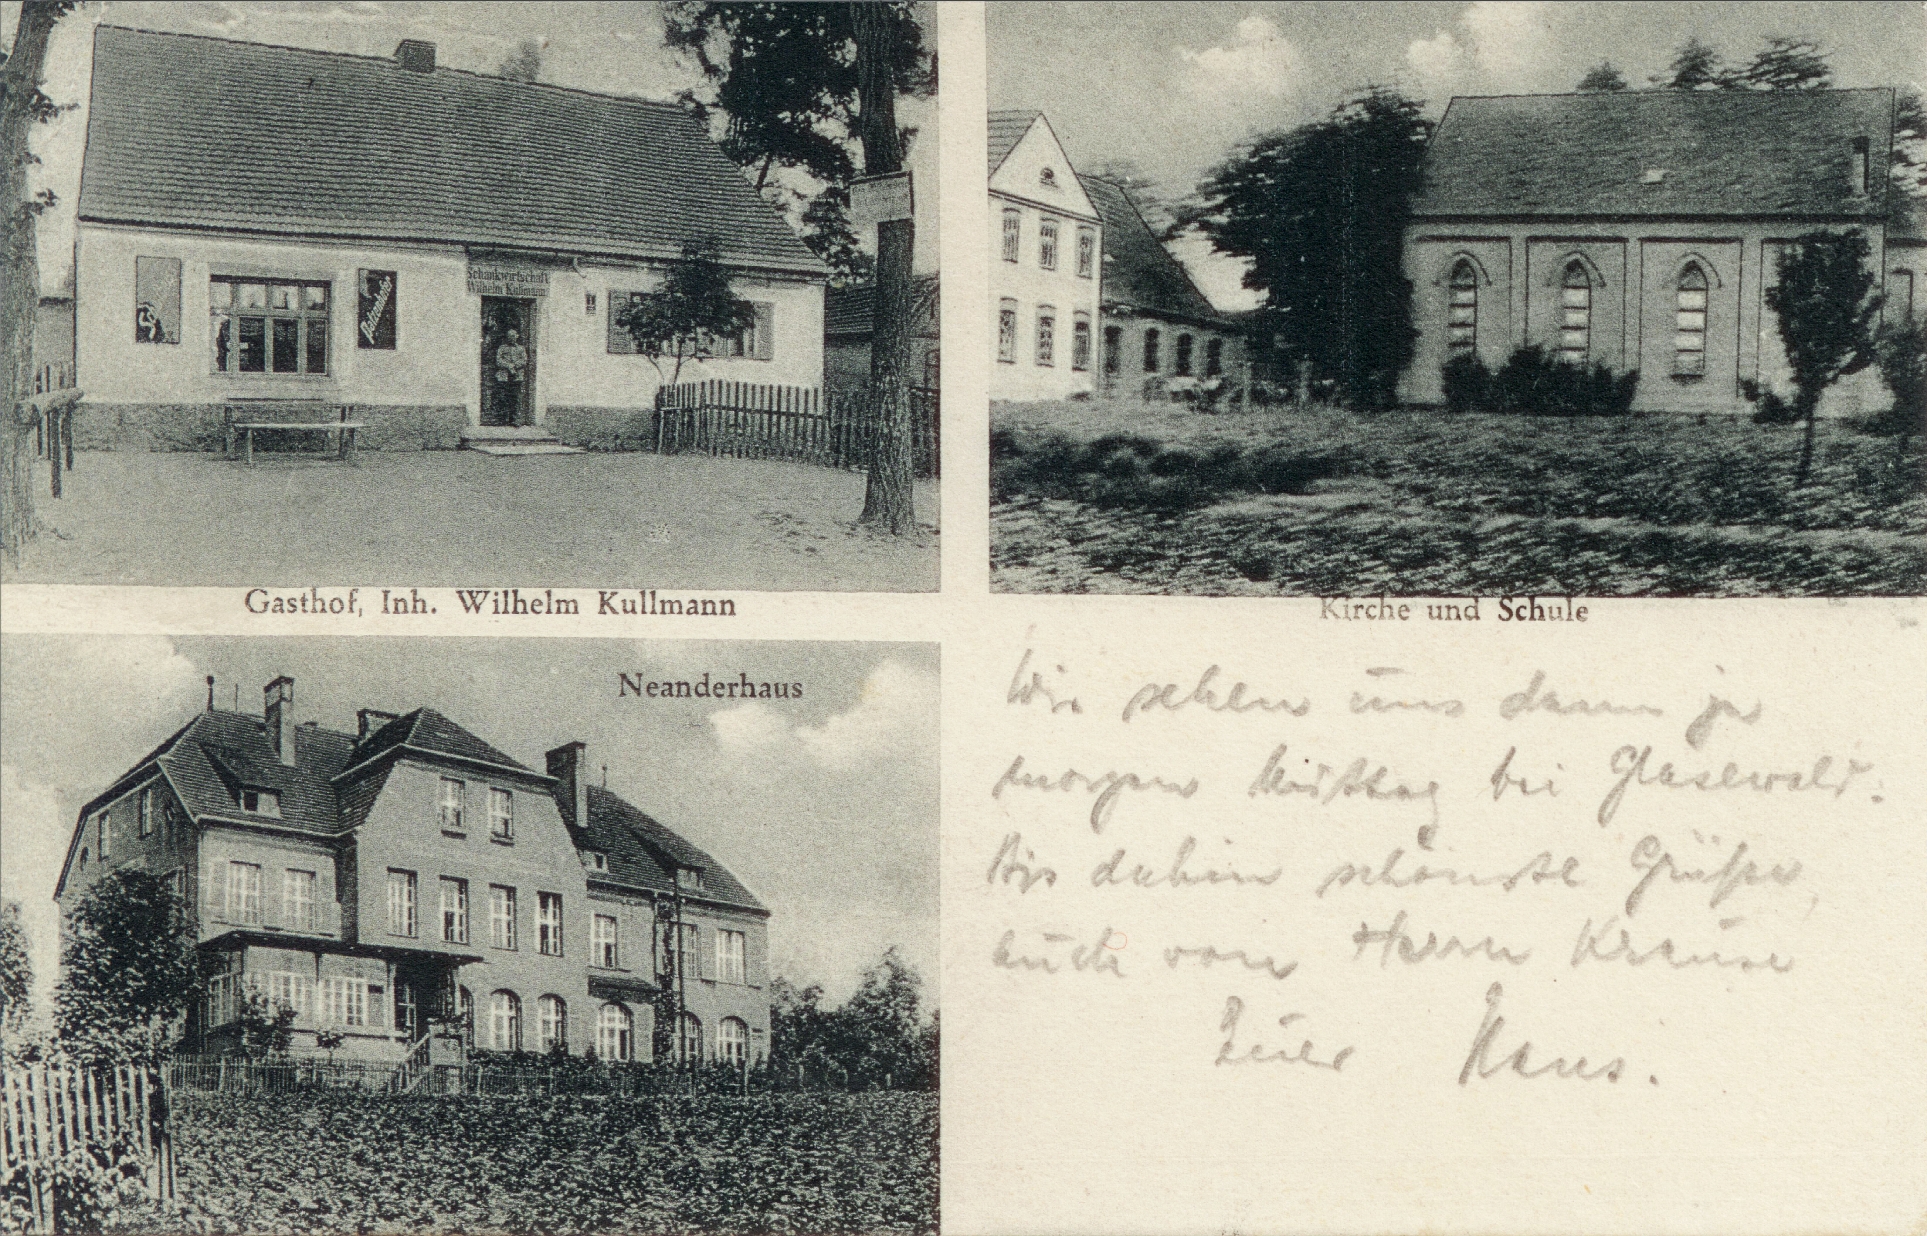 Schankwirtschaft
Wilhelm Kullmann
Patzenhofer
Gasthof, Inh. Wilhelm Kullmann
Kirche und Schule
Neanderhaus
Wir sehen uns dann ja
morgen Mittag bei Glasewald.
Bis dahin schönste Grüße,
auch von Herrn Krause
Euer Hans.